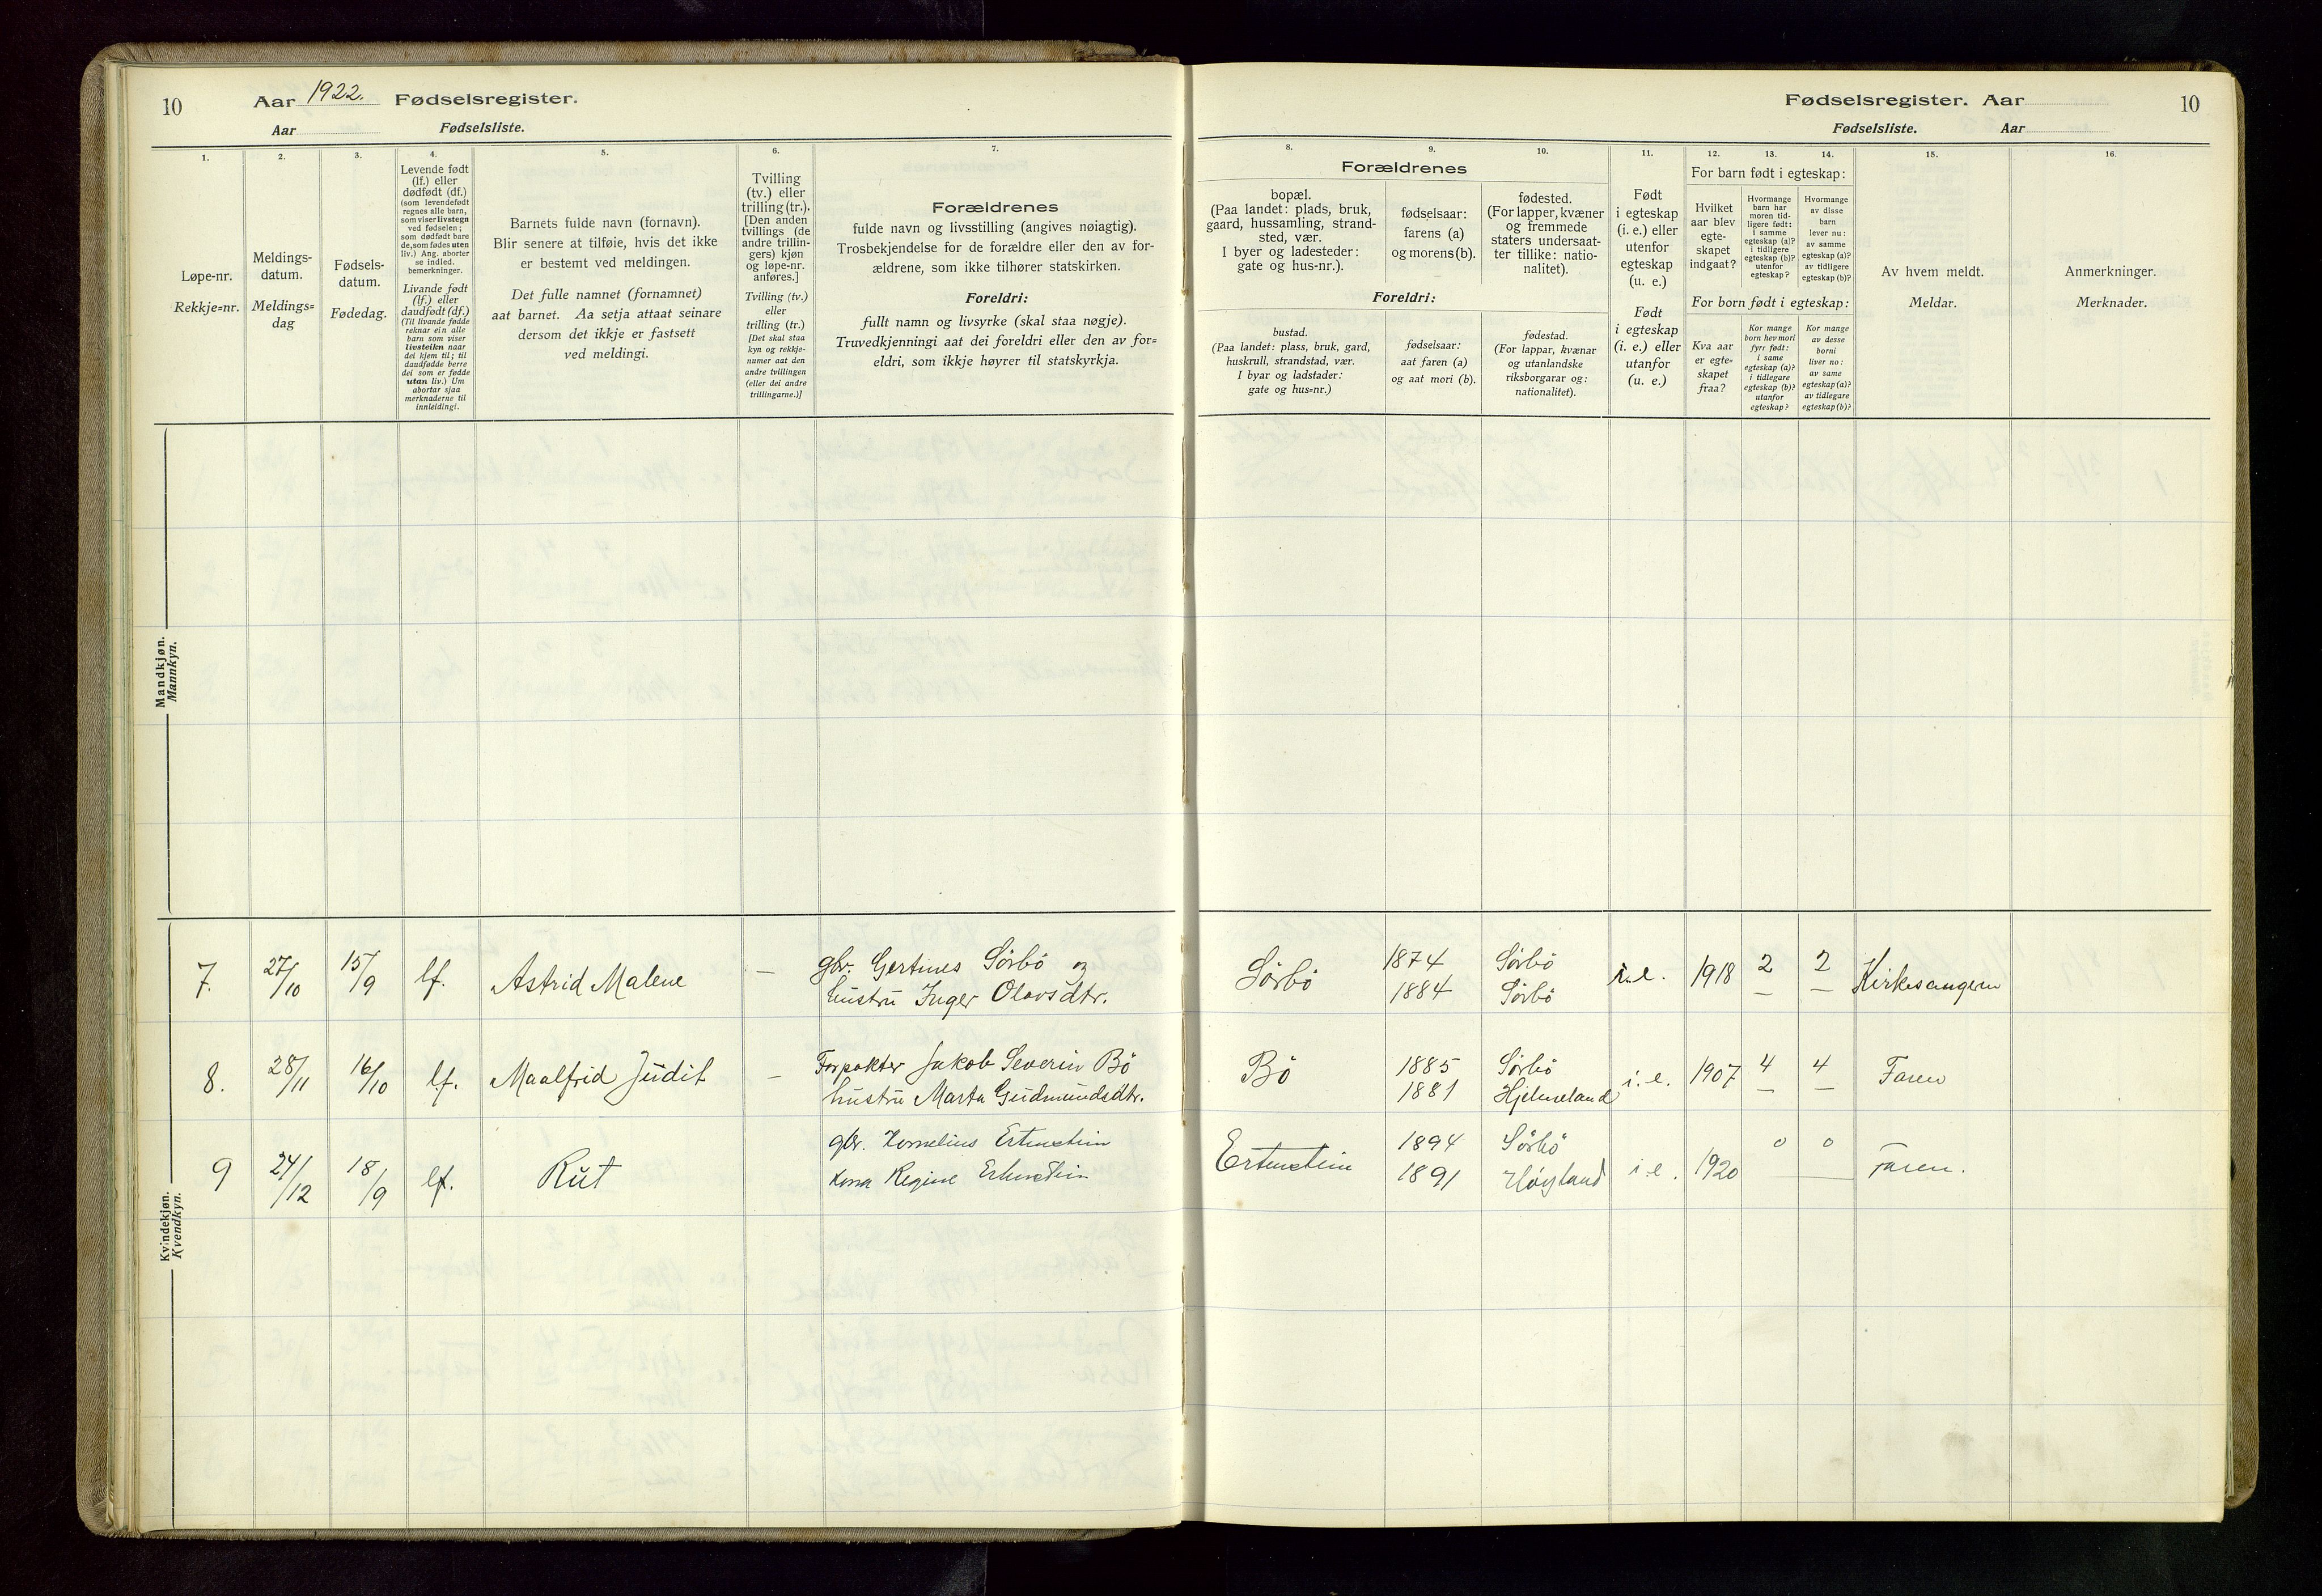 10 Aar 1922. Fødselsregister.
Aar Fødselsliste.
Fødselsregister. Aar 10
Fødselsliste. Aar
1.
Løpe-nr.
Rekkje=nr.
2.
Meldings-
datum.
Meldings=
dag
3.
Fødsels-
datum.
Fødedag.
4.
Levende født
(lf.) eller
dødfødt (df.)
(som levendefødt
regnes alle barn,
som viser livstegn
ved fødselen;
som dødfødt bare
de, som fødes uten
liv.) Ang. aborter
se indled.
bemerkninger.
Livande født
(lf.) eller
daudfødt (df.)
(Til livande fødde
reknar ein alle
barn som viser
livsteikn naar
dei kjem til; til
daudfødde berre
dei som er fødde
utan liv.) Um
abortar sjaa
merknaderne til
innleidingi.
5.
Barnets fulde navn (fornavn).
Blir senere at tilføie, hvis det ikke
er bestemt ved meldingen.
Det fulle namnet (fornamnet)
aat barnet. Aa setja attaat seinare
dersom det ikkje er fastsett
ved meldingi.
6.
Tvilling
(tv.) eller
trilling (tr.).
[Den anden
tvillings (de
andre trillin-
gers) kjøn
og løpe-nr.
anføres.]
Tvilling (tv.)
eller
trilling (tr.)
[Det skal staa
kyn og rekkje-
numer aat den
andre tvillingen
(eller dei andre
trillingarne.)]
7.
Forældrenes
fulde navn og livsstilling (angives nøiagtig).
Trosbekjendelse for de forældre eller den av for-
ældrene, som ikke tilhører statskirken.
Foreldri:
fullt namn og livsyrke (skal staa nøgje).
Truvedkjenningi aat dei foreldri eller den av for=
eldri, som ikkje høyrer til statskyrkja.
Forældrenes
8.
bopæl.
(Paa landet: plads, bruk,
gaard, hussamling, strand-
sted, vær.
I byer og ladesteder:
gate og hus-nr.).
9.
fødselsaar:
farens (a)
og morens (b).
10.
fødested.
(For lapper, kvæner
og fremmede
staters undersaat-
ter tillike: natio-
nalitet).
Foreldri:
bustad.
(Paa landet: plass, bruk, gard,
huskrull, strandstad, vær.
I byar og ladstader:
gate og hus=nr.)
fødselsaar:
aat faren (a)
og aat mori (b).
fødestad.
(For lappar, kvænar
og utanlandske
riksborgarar og:
nationalitet).
11.
Født
i egteskap
(i. e.) eller
utenfor
egteskap
(u. e.)
Født
i egteskap
(i. e.) eller
utanfor
(u. e.)
12. 13. 14.
For barn født i egteskap:
Hvilket
aar blev
egte-
skapet
indgaat?
Hvormange
barn har
moren tid-
ligere født:
i samme
egteskap (a)?
i tidligere
egteskap (b)?
utenfor
egteskap?
Hvormange
av disse
barn
lever nu:
av samme
egteskap (a)?
av tidligere
egteskap (b)?
For born født i egteskap:
Kva aar
er egte=
skapet
fraa?
Kor mange
born hev mori
fyrr født:
i same
egteskap (a)?
i tidlegare
egteskap (b)?
utanfor
egteskap?
Kor mange
av desse
borni
liver no:
av same
egteskap (a)?
av tidlegare
egteskap (b)?
15.
Av hvem meldt.
Meldar.
16.
Anmerkninger.
Merknader.
Mandkjøn.
Mannkyn.
Kvindekjøn.
Kvendkyn.
7. 27/10 15/9 lf. Astrid Malene — gbr. Gertines Sörbö og Sörbö 1874 Sörbö i.e. 1918 2 2 Kirkesangeren
hustru Inger Olavsdtr. 1884 Sörbö — —
8. 28/11 16/10 lf. Maalfrid Judit — Forpakter Jakob Severin Bö Bö 1885 Sörbö i.e. 1907 4 4 Faren
hustru Marta Gudmundsdtr. 1881 Hjelmeland — —
9 24/12 18/9 lf. Rut gbr. Kornelius Ertenstein Ertenstein 1894 Sörbö i.e. 1920 0 0 Faren.
kona Regine Ertenstein 1891 Höyland — —